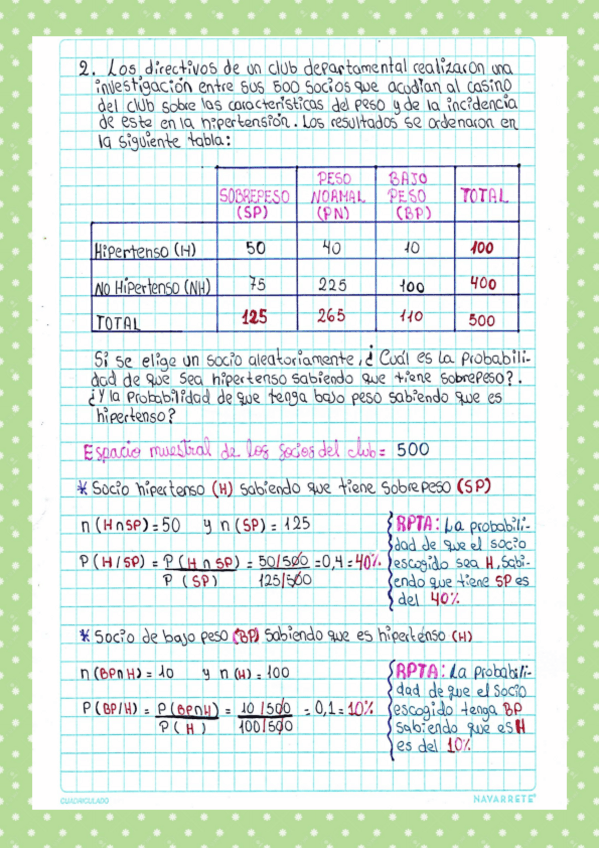 2. Los directivos de un club departamental realizaron una
investigación entre sus 500 socios que acudian al casino
del club sobre las caracteristicas del peso y de la incidencia
de este en la hipertensión. Los resultados se ordenaron en
la siguiente tabla:
SOBREPESO (SP) PESO NORMAL (PN) BAJO PESO (BP) TOTAL
Hipertenso (H) 50 40 10 100
No Hipertenso (NH) 75 225 100 400
TOTAL 125 265 110 500
Si se elige un socio aleatoriamente, ¿Cuál es la probabili-
dad de que sea hipertenso sabiendo que tiene sobrepeso?.
¿Y la probabilidad de que tenga bajo peso sabiendo que es
hipertenso?
Espacio muestral de los socios del club = 500
* Socio hipertenso (H) sabiendo que tiene sobrepeso (SP)
n (H∩SP) = 50 y n (SP) = 125
P (H/SP) = P (H∩SP) / P (SP) = 50/500 / 125/500 = 0,4 = 40%
RPTA: La probabili-
dad de que el socio
escogido sea H, sabi-
endo que tiene SP es
del 40%
* Socio de bajo peso (BP) sabiendo que es hipertenso (H)
n (BP∩H) = 10 y n (H) = 100
P (BP/H) = P (BP∩H) / P (H) = 10/500 / 100/500 = 0,1 = 10%
RPTA: La probabili-
dad de que el socio
escogido tenga BP
sabiendo que es H
es del 10%
CUADRICULADO
NAVARRETE